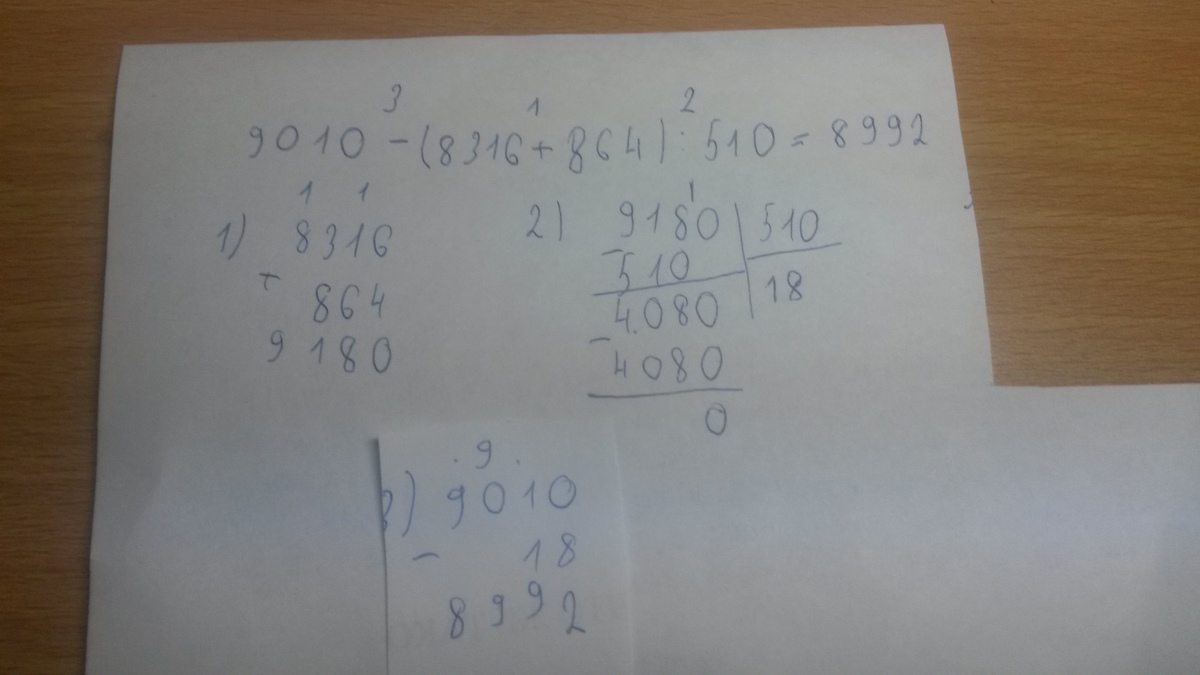 3 1 2
9010 - (8316 + 864) : 510 = 8992
1 1
1) 8316
+ 864
9180
1
2) 9180 | 510
- 510 | 18
4080
- 4080
0
. 9 .
3) 9010
- 18
8992